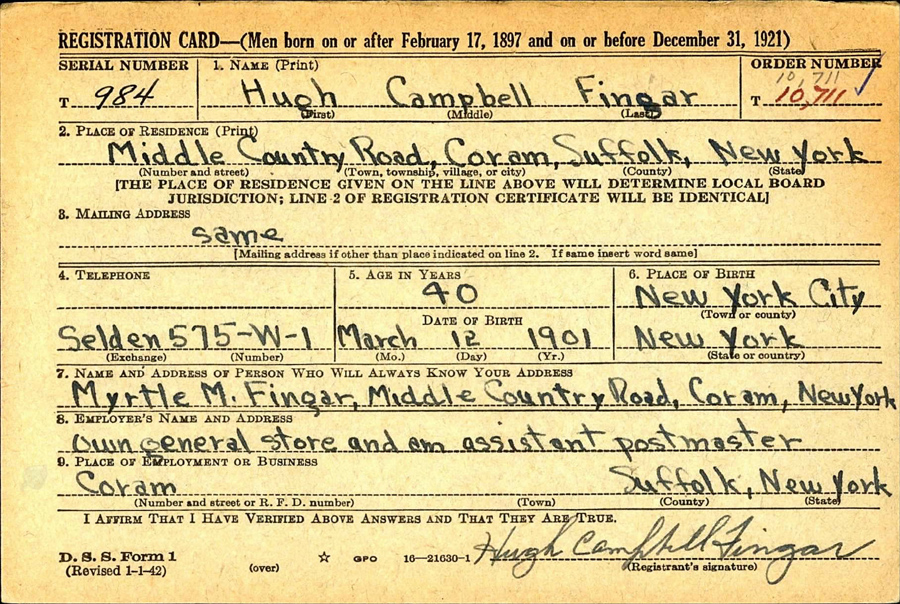 REGISTRATION CARD—(Men born on or after February 17, 1897 and on or before December 31, 1921)
SERIAL NUMBER 1. NAME (Print) ORDER NUMBER
10,711
T 984 Hugh Campbell Fingar T 10,711
(First) (Middle) (Last)
2. PLACE OF RESIDENCE (Print)
Middle Country Road, Coram, Suffolk, New York
(Number and street) (Town, township, village, or city) (County) (State)
[THE PLACE OF RESIDENCE GIVEN ON THE LINE ABOVE WILL DETERMINE LOCAL BOARD
JURISDICTION; LINE 2 OF REGISTRATION CERTIFICATE WILL BE IDENTICAL]
3. MAILING ADDRESS
same
[Mailing address if other than place indicated on line 2. If same insert word same]
4. TELEPHONE 5. AGE IN YEARS 6. PLACE OF BIRTH
40 New York City
DATE OF BIRTH (Town or county)
Selden 575-W-1 March 12 1901 New York
(Exchange) (Number) (Mo.) (Day) (Yr.) (State or country)
7. NAME AND ADDRESS OF PERSON WHO WILL ALWAYS KNOW YOUR ADDRESS
Myrtle M. Fingar, Middle Country Road, Coram, New York
8. EMPLOYER'S NAME AND ADDRESS
own general store and am assistant postmaster
9. PLACE OF EMPLOYMENT OR BUSINESS
Coram Suffolk, New York
(Number and street or R. F. D. number) (Town) (County) (State)
I AFFIRM THAT I HAVE VERIFIED ABOVE ANSWERS AND THAT THEY ARE TRUE.
D. S. S. Form 1 ☆ GPO 16—21630-1 Hugh Campbell Fingar
(Revised 1-1-42) (over) (Registrant's signature)